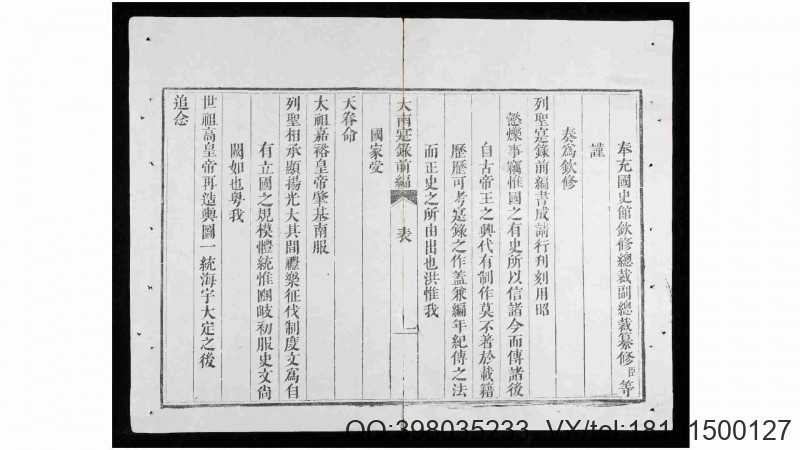 奉充國史館欽修總裁副總裁纂修臣等
謹
奏爲欽修
列聖寔錄前編書成請行刊刻用昭
懿爍事竊惟國之有史所以信諸今而傳諸後
自古帝王之興代有制作莫不著於載籍
歷歷可考寔錄之作葢兼編年紀傳之法
而正史之所由出也洪惟我
大南寔錄前編 表 一
國家受
天眷命
太祖嘉裕皇帝肇基南服
列聖相承顯揚光大其間禮樂征伐制度文爲自
有立國之規模體統惟豳岐初服史文尙
闕如也粤我
世祖高皇帝再造輿圖一統海宇大定之後
追念
QQ:398035233 VX/tel:181 1500127